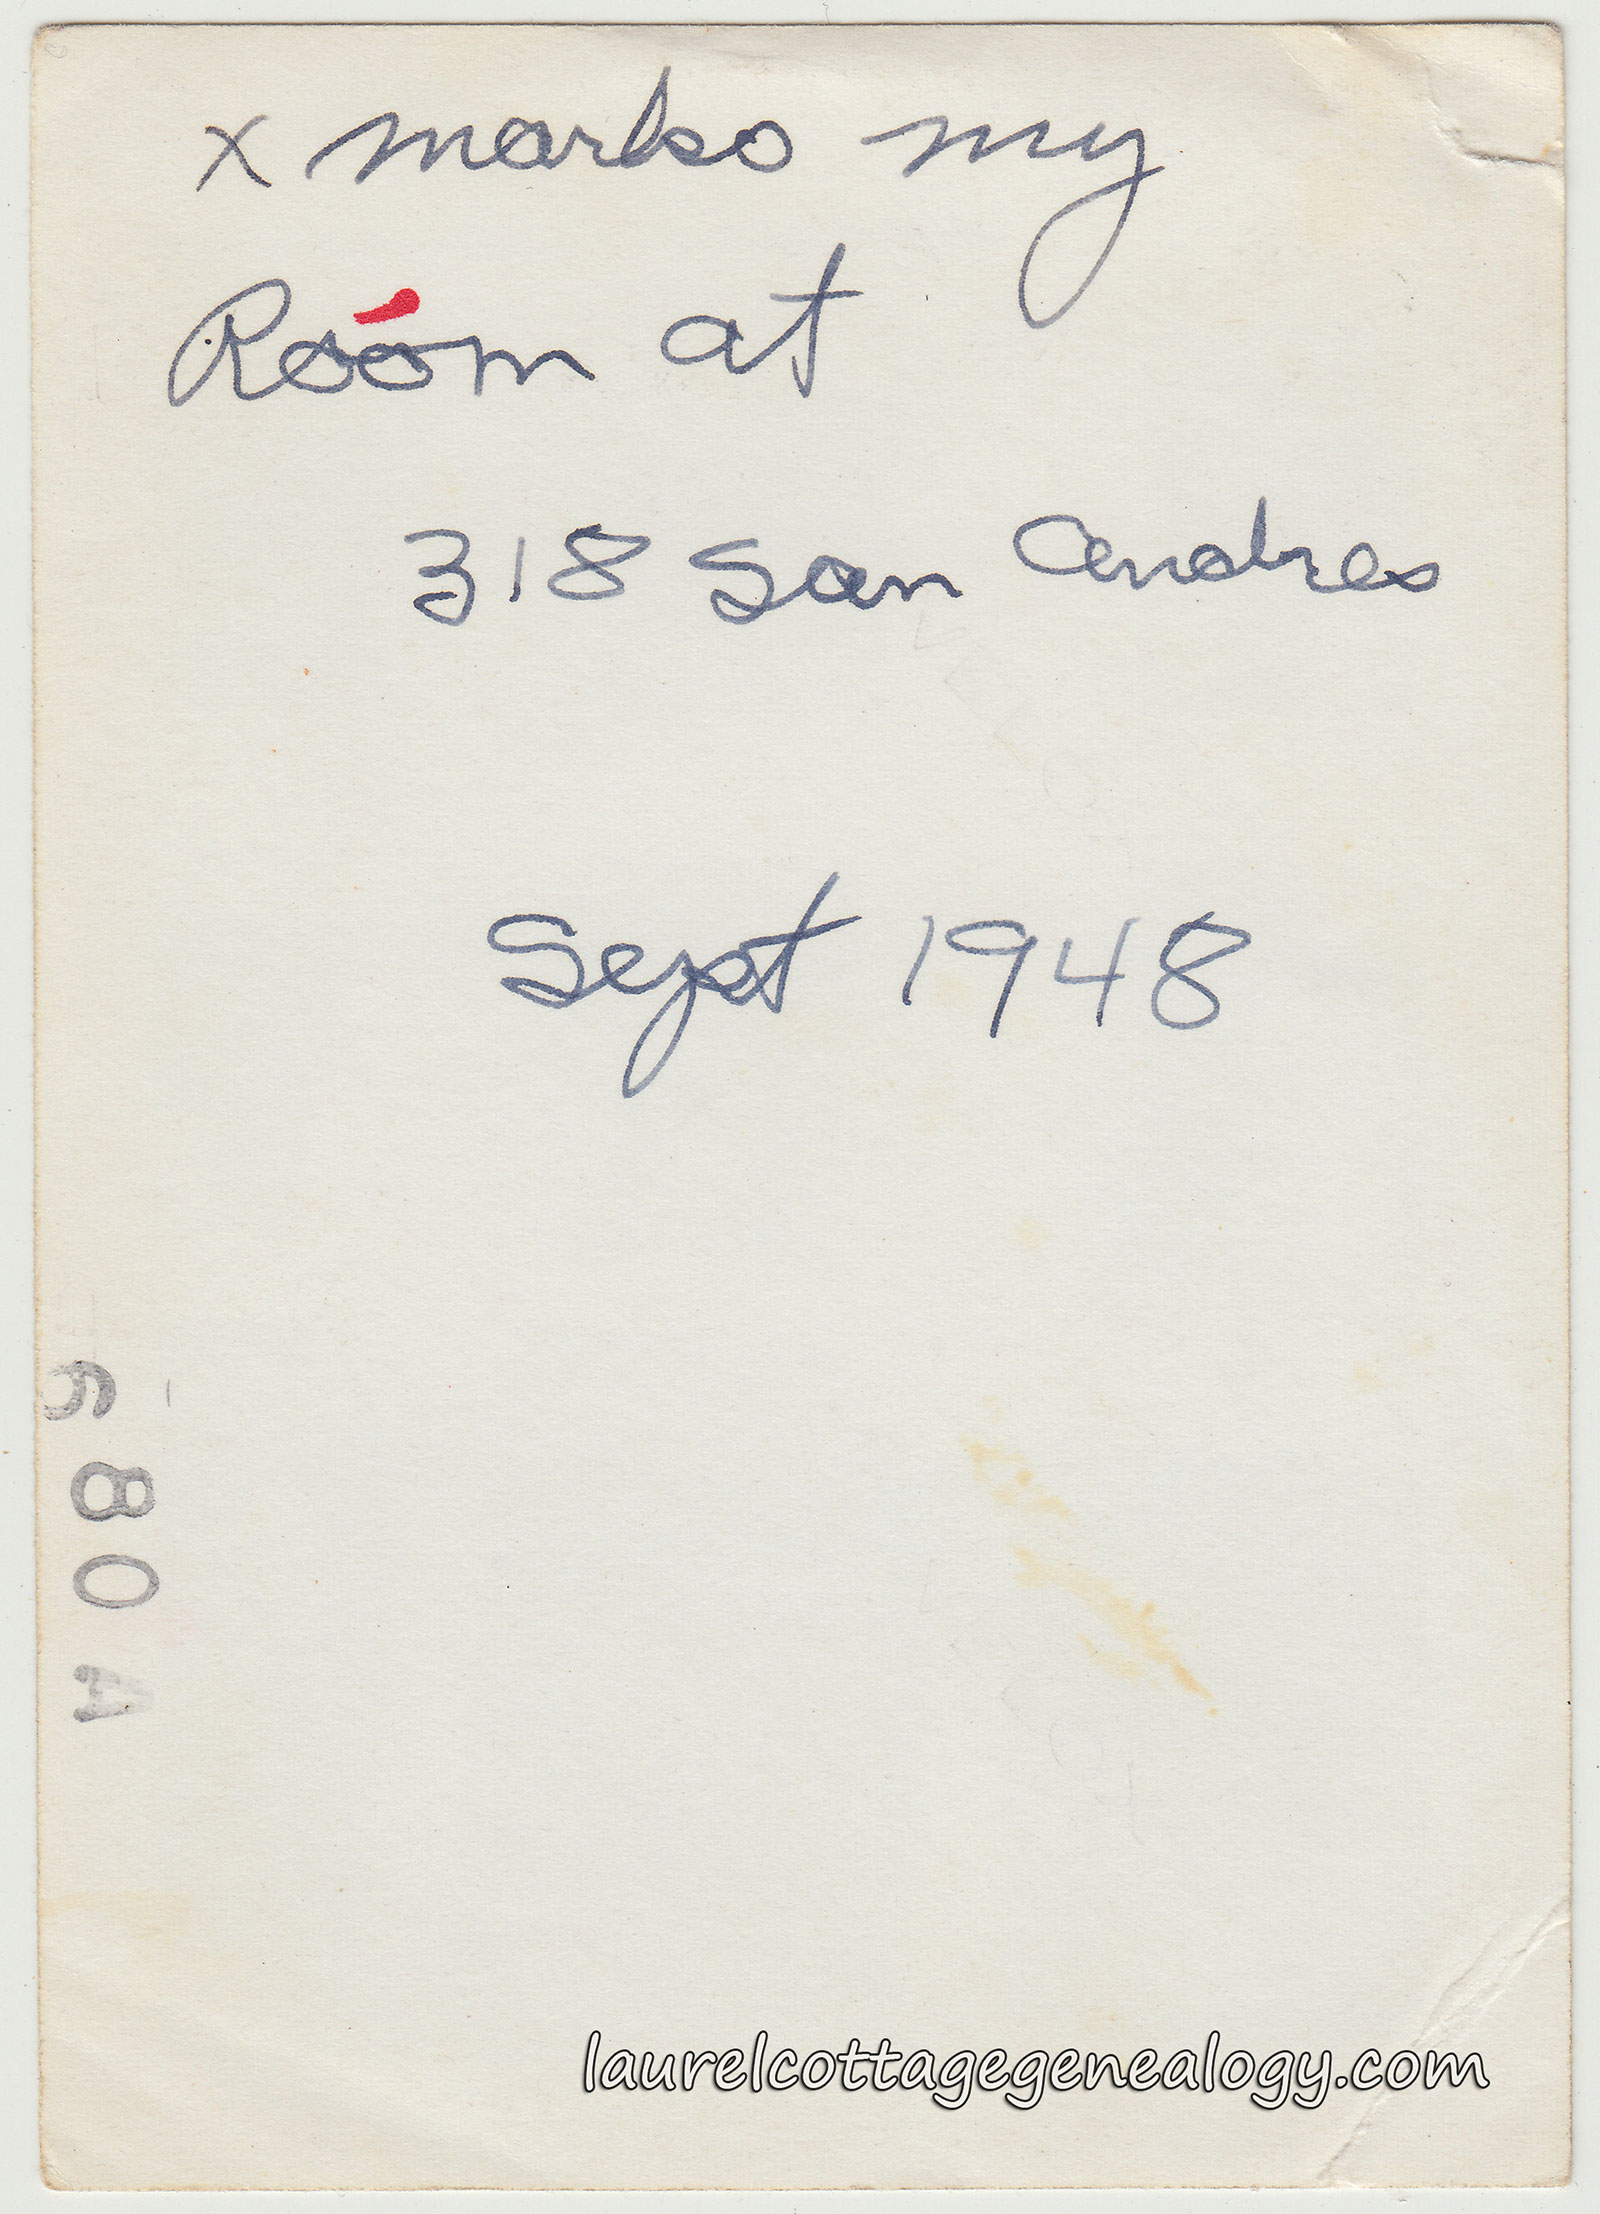 x marks my
Room at
318 San Andres
Sept 1948
680A
laurelcottagegenealogy.com